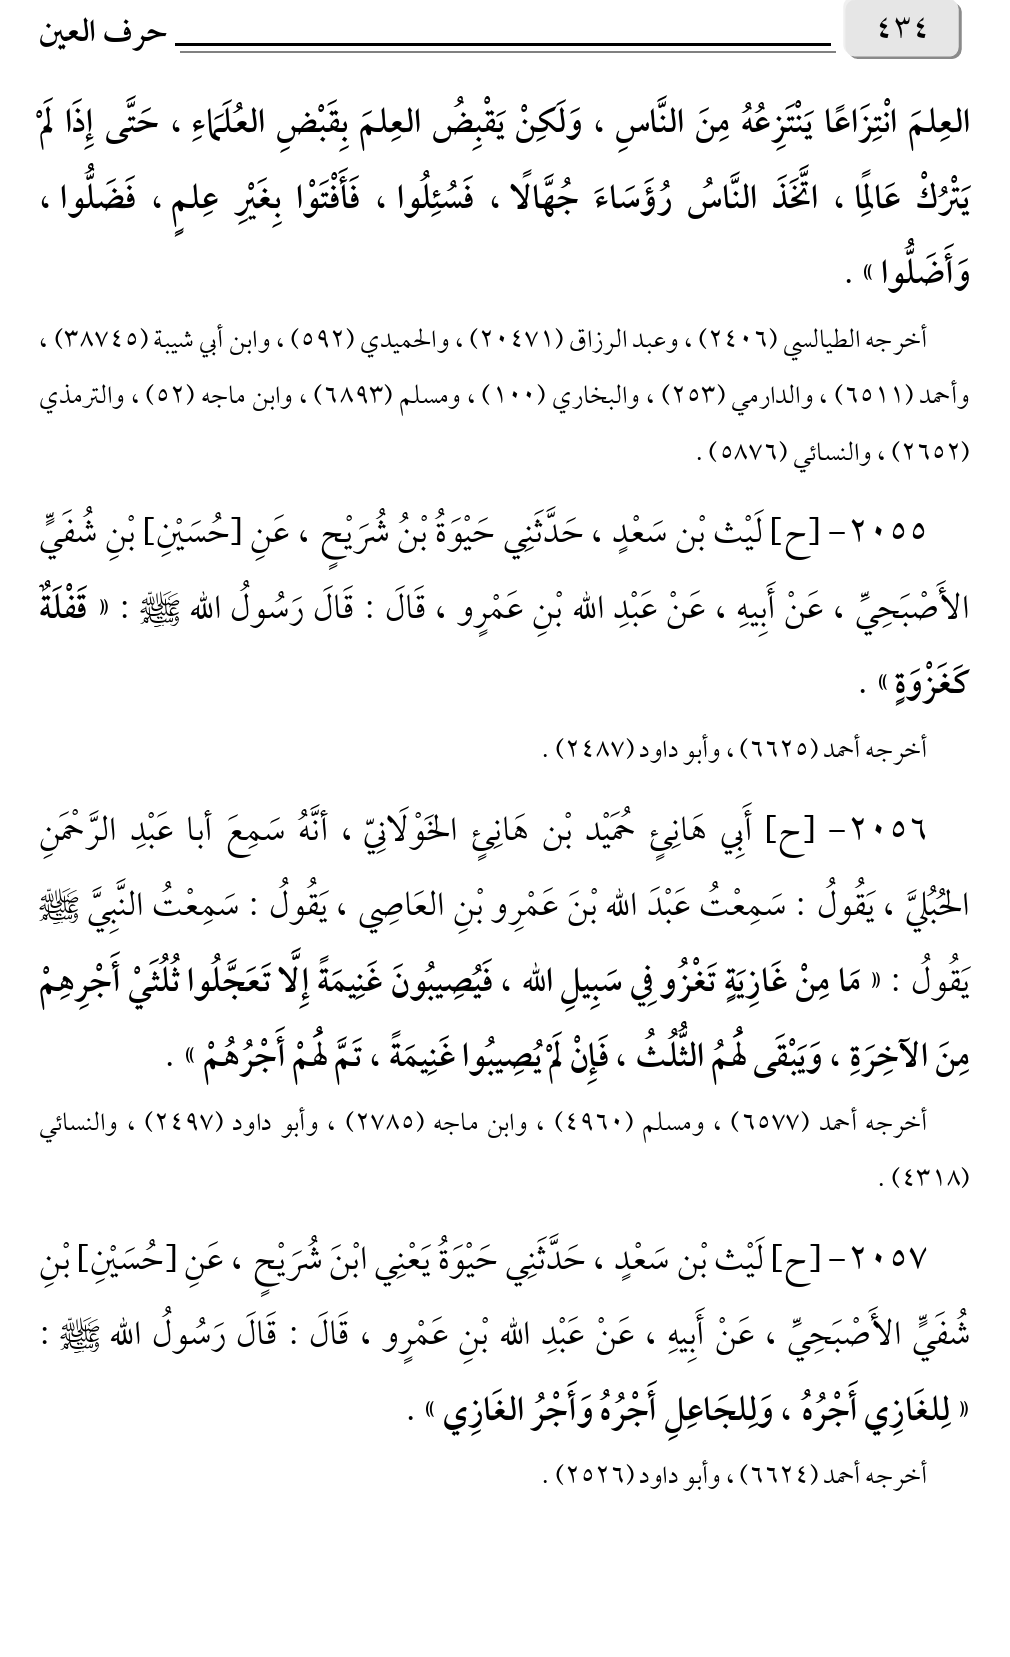 ٤٣٤
حرف العين
العِلمَ انْتِزَاعًا يَنْتَزِعُهُ مِنَ النَّاسِ ، وَلَكِنْ يَقْبِضُ العِلمَ بِقَبْضِ العُلَمَاءِ ، حَتَّى إِذَا لَمْ
يَتْرُكْ عَالِمًا ، اتَّخَذَ النَّاسُ رُؤَسَاءَ جُهَّالًا ، فَسُئِلُوا ، فَأَفْتَوْا بِغَيْرِ عِلمٍ ، فَضَلُّوا ،
وَأَضَلُّوا » .
أخرجه الطيالسي (٢٤٠٦) ، وعبد الرزاق (٢٠٤٧١) ، والحميدي (٥٩٢) ، وابن أبي شيبة (٣٨٧٤٥) ،
وأحمد (٦٥١١) ، والدارمي (٢٥٣) ، والبخاري (١٠٠) ، ومسلم (٦٨٩٣) ، وابن ماجه (٥٢) ، والترمذي
(٢٦٥٢) ، والنسائي (٥٨٧٦) .
٢٠٥٥- [ح] لَيْث بْن سَعْدٍ ، حَدَّثَنِي حَيْوَةُ بْنُ شُرَيْحٍ ، عَنِ [حُسَيْنِ] بْنِ شُفَيٍّ
الأَصْبَحِيِّ ، عَنْ أَبِيهِ ، عَنْ عَبْدِ الله بْنِ عَمْرٍو ، قَالَ : قَالَ رَسُولُ الله ﷺ : « قَفْلَةٌ
كَغَزْوَةٍ » .
أخرجه أحمد (٦٦٢٥) ، وأبو داود (٢٤٨٧) .
٢٠٥٦- [ح] أَبِي هَانِئٍ حُمَيْد بْن هَانِئٍ الخَوْلَانِيّ ، أنَّهُ سَمِعَ أبا عَبْدِ الرَّحْمَنِ
الحُبُلِيَّ ، يَقُولُ : سَمِعْتُ عَبْدَ الله بْنَ عَمْرِو بْنِ العَاصِي ، يَقُولُ : سَمِعْتُ النَّبِيَّ ﷺ
يَقُولُ : « مَا مِنْ غَازِيَةٍ تَغْزُو فِي سَبِيلِ الله ، فَيُصِيبُونَ غَنِيمَةً إِلَّا تَعَجَّلُوا ثُلُثَيْ أَجْرِهِمْ
مِنَ الآخِرَةِ ، وَيَبْقَى لَهُمُ الثُّلُثُ ، فَإِنْ لَمْ يُصِيبُوا غَنِيمَةً ، تَمَّ لَهُمْ أَجْرُهُمْ » .
أخرجه أحمد (٦٥٧٧) ، ومسلم (٤٩٦٠) ، وابن ماجه (٢٧٨٥) ، وأبو داود (٢٤٩٧) ، والنسائي
(٤٣١٨) .
٢٠٥٧- [ح] لَيْث بْن سَعْدٍ ، حَدَّثَنِي حَيْوَةُ يَعْنِي ابْنَ شُرَيْحٍ ، عَنِ [حُسَيْنِ] بْنِ
شُفَيٍّ الأَصْبَحِيِّ ، عَنْ أَبِيهِ ، عَنْ عَبْدِ الله بْنِ عَمْرٍو ، قَالَ : قَالَ رَسُولُ الله ﷺ :
« لِلغَازِي أَجْرُهُ ، وَلِلجَاعِلِ أَجْرُهُ وَأَجْرُ الغَازِي » .
أخرجه أحمد (٦٦٢٤) ، وأبو داود (٢٥٢٦) .